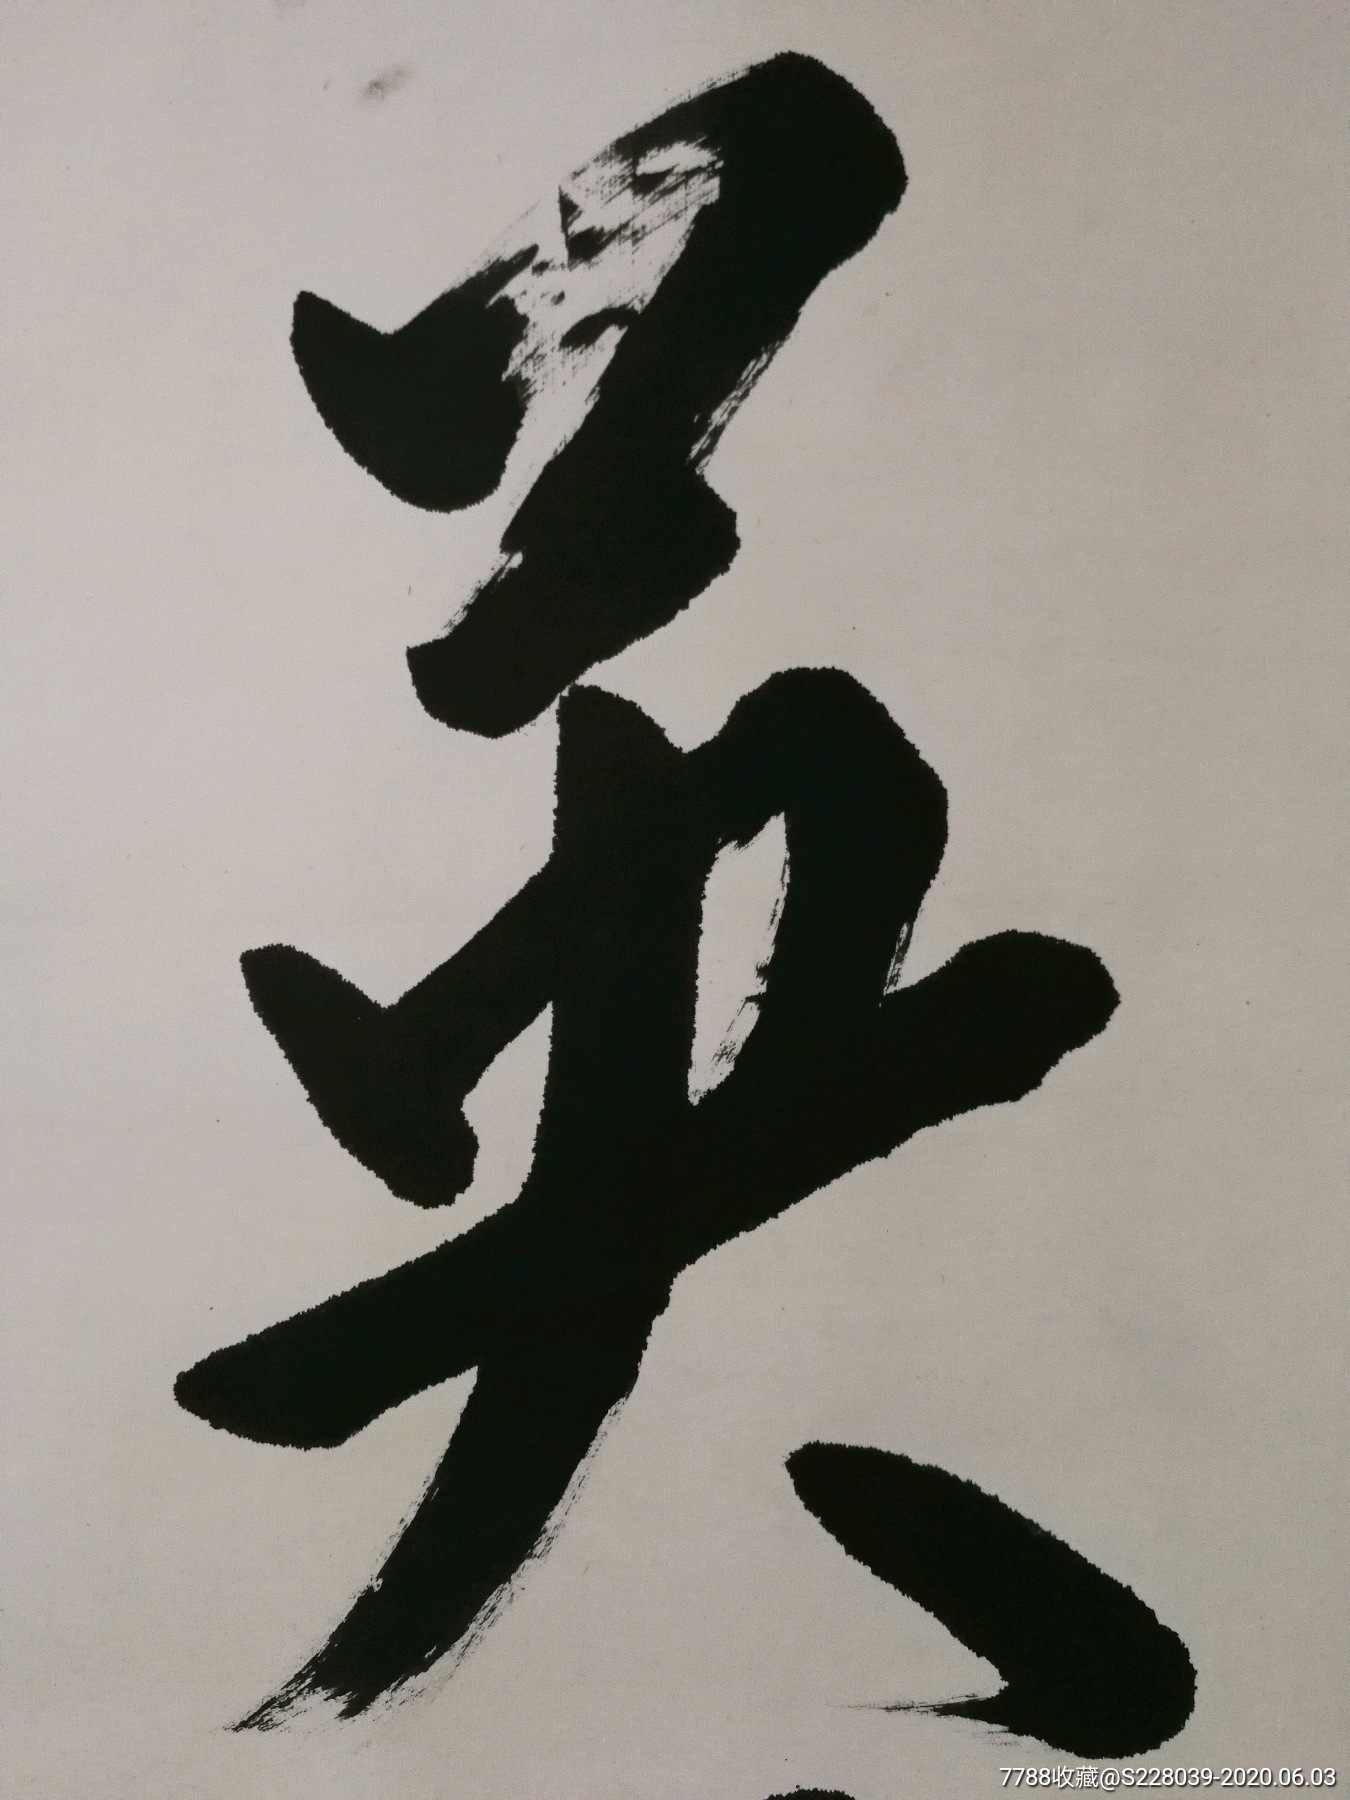 英
7788收藏@S228039-2020.06.03